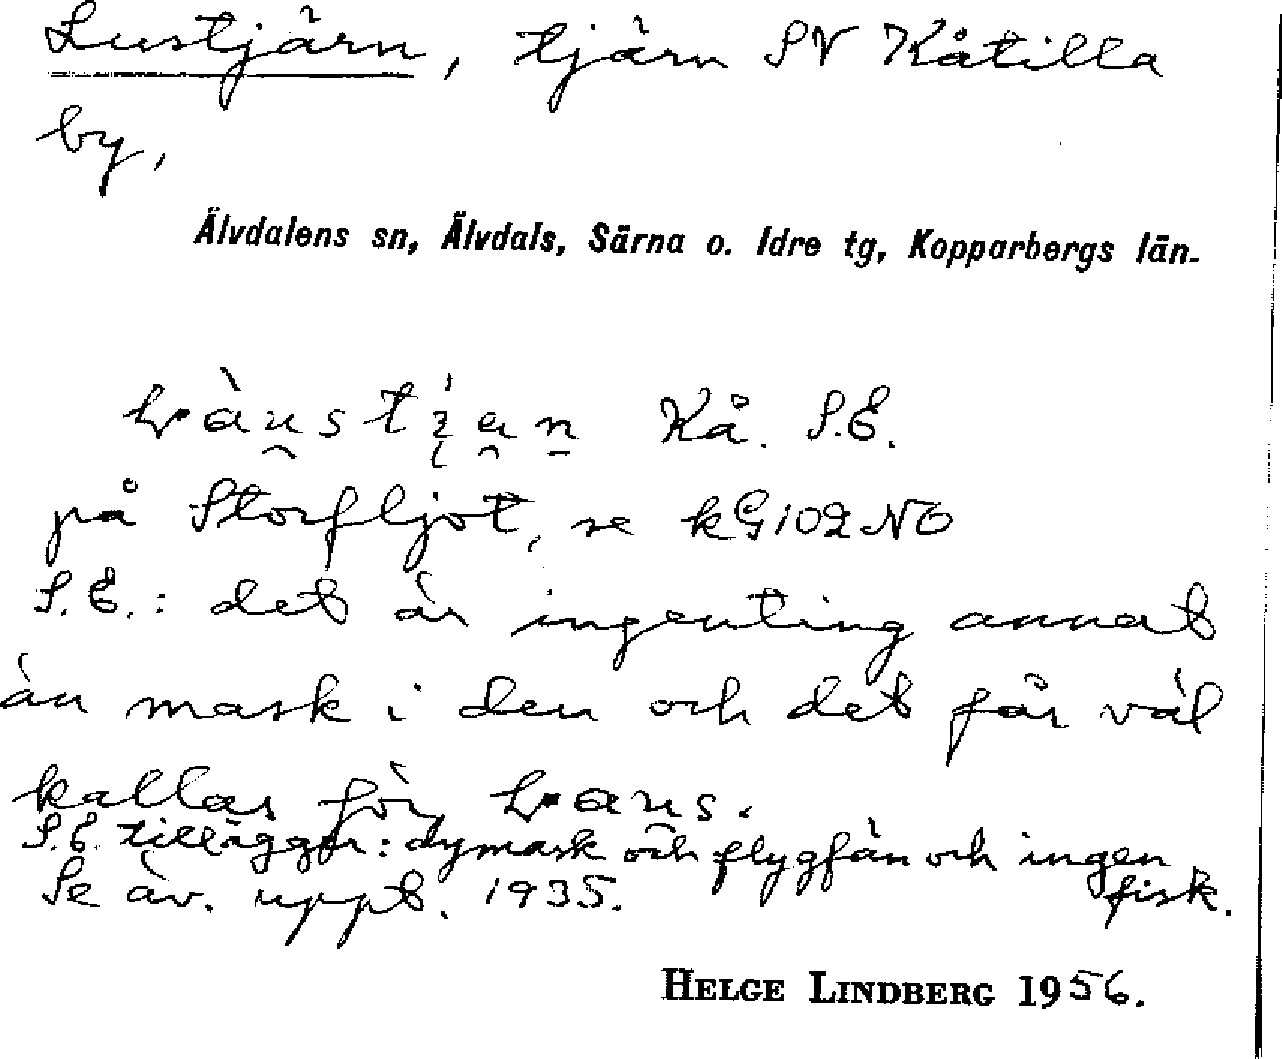 Lustjärn, tjärn SV Kåtilla
by,
Älvdalens sn, Älvdals, Särna o. Idre tg, Kopparbergs län.
Kå. S.E.
på Storfljot, se kG102NO
S.E.: det är ingenting annat
än mask i den och det får väl
kallas för
S.E. tillägger: dymask och flygfän och ingen
fisk.
Se äv. uppt. 1935.
HELGE LINDBERG 1956.